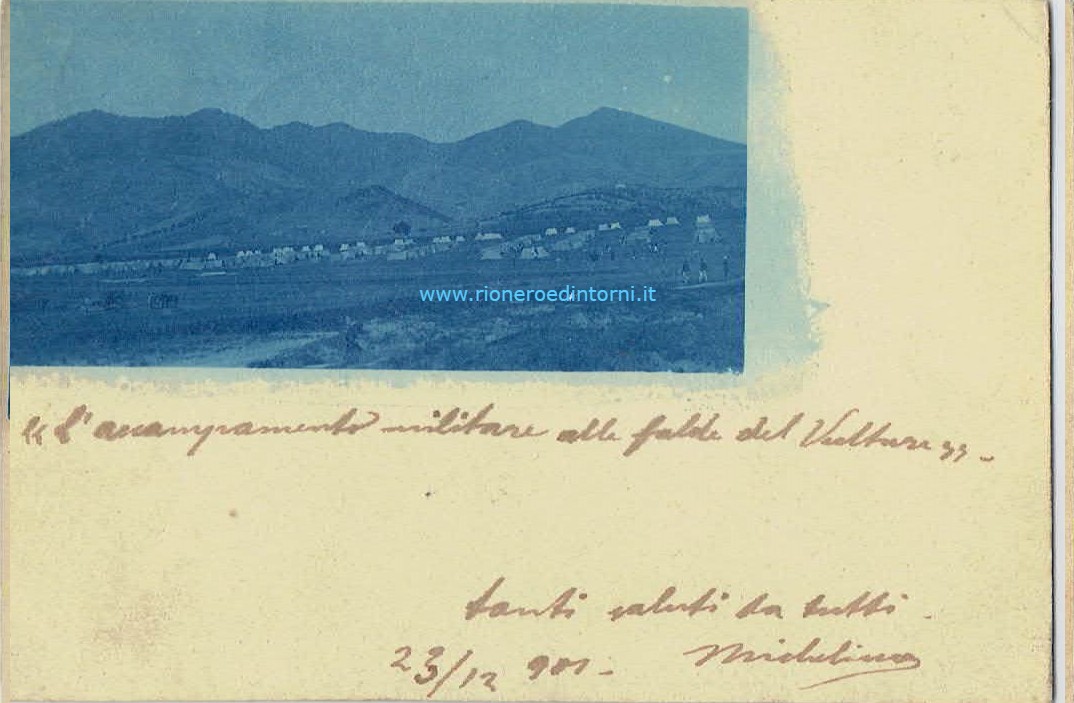 www.rioneroedintorni.it
"L'accampamento militare alle falde del Vulture" -
tanti saluti da tutti.
Michelina
23/12 901 -